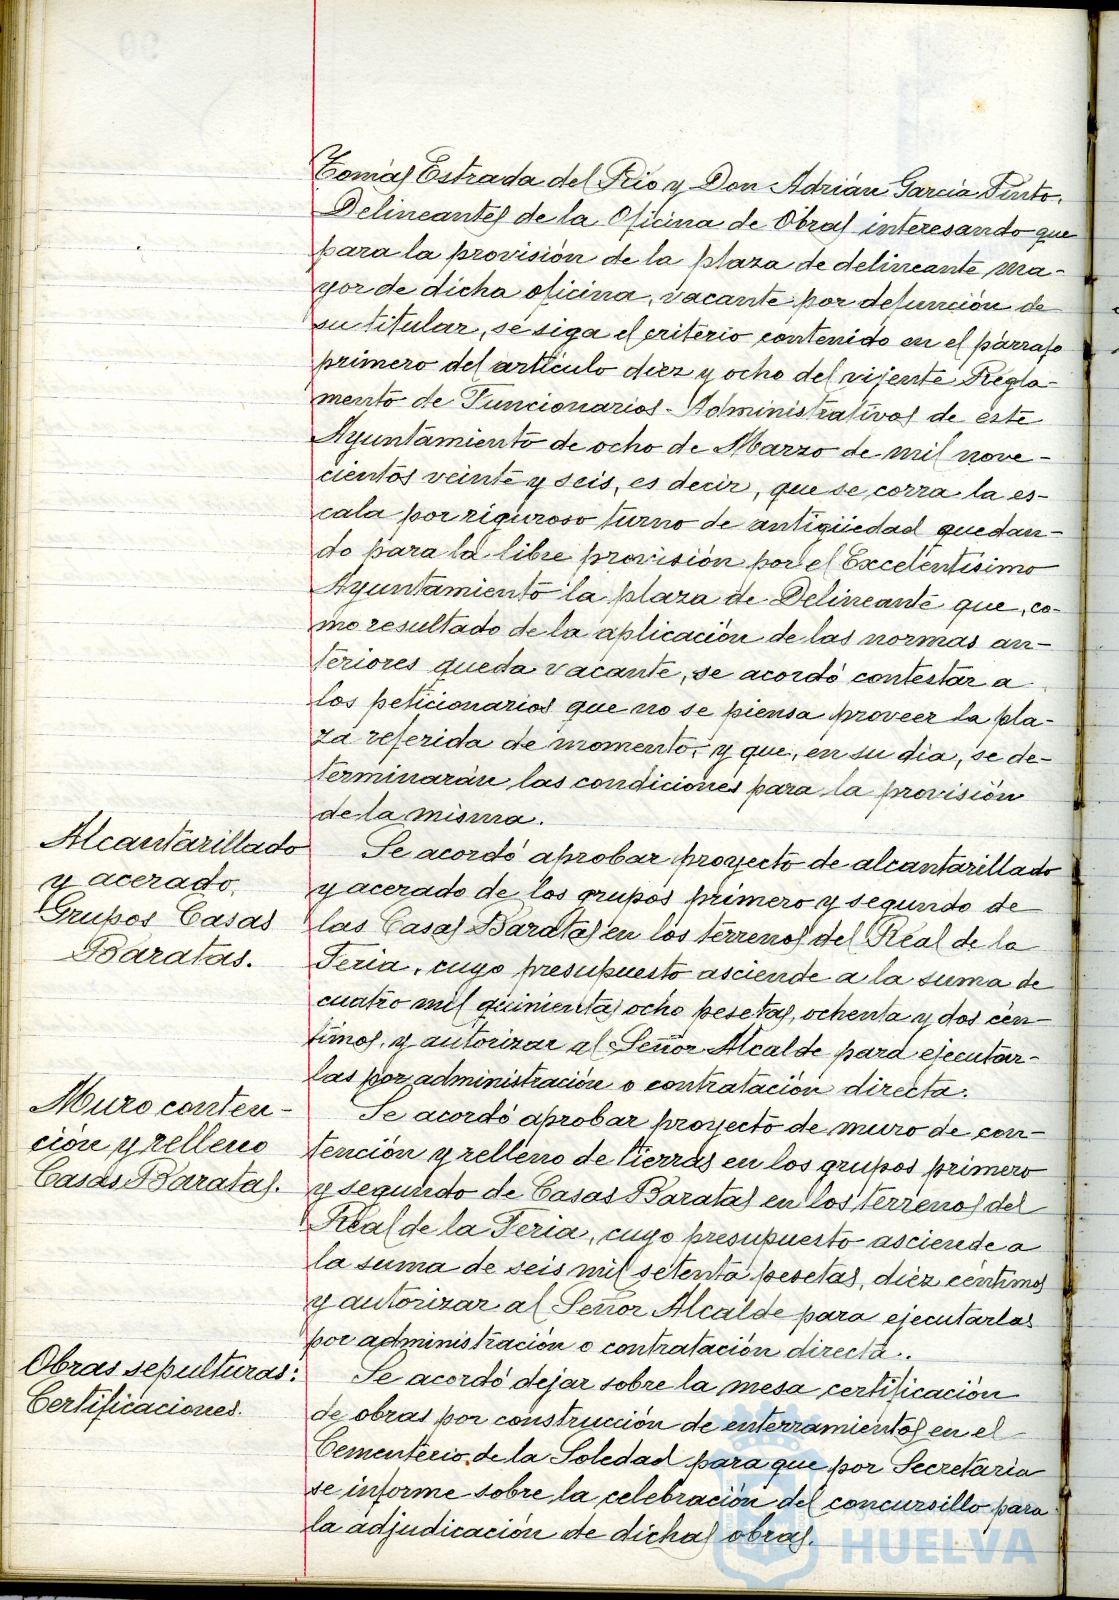 Tomás Estrada del Rio y Don Adrián García Pinto,
Delineantes de la Oficina de Obras interesando que
para la provisión de la plaza de delineante ma-
yor de dicha oficina, vacante por defunción de
su titular, se siga el criterio contenido en el párrafo
primero del artículo diez y ocho del vijente Regla-
mento de Funcionarios Administrativos de este
Ayuntamiento de ocho de Marzo de mil nove-
cientos veinte y seis, es decir, que se corra la es-
cala por riguroso turno de antigüedad quedan-
do para la libre provisión por el Excelentísimo
Ayuntamiento la plaza de Delineante que, co-
mo resultado de la aplicación de las normas an-
teriores queda vacante, se acordó contestar a
los peticionarios que no se piensa proveer la pla-
za referida de momento, y que, en su dia, se de-
terminarán las condiciones para la provisión
de la misma.
Alcantarillado
y acerado,
Grupos Casas
Baratas.
Se acordó aprobar proyecto de alcantarillado
y acerado de los grupos primero y segundo de
las Casas Baratas en los terrenos del Real de la
Feria, cuyo presupuesto asciende a la suma de
cuatro mil quinientas ocho pesetas, ochenta y dos cén-
timos, y autorizar al Señor Alcalde para ejecutar-
las por administración o contratación directa.
Muro conten-
ción y relleno
Casas Baratas.
Se acordó aprobar proyecto de muro de con-
tención y relleno de tierras en los grupos primero
y segundo de Casas Baratas en los terrenos del
Real de la Feria, cuyo presupuesto asciende a
la suma de seis mil setenta pesetas, diez céntimos
y autorizar al Señor Alcalde para ejecutarlas
por administración o contratación directa.
Obras sepulturas:
Certificaciones.
Se acordó dejar sobre la mesa certificación
de obras por construcción de enterramientos en el
Cementerio de la Soledad para que por Secretaria
se informe sobre la celebración del concursillo para
la adjudicación de dichas obras.
HUELVA